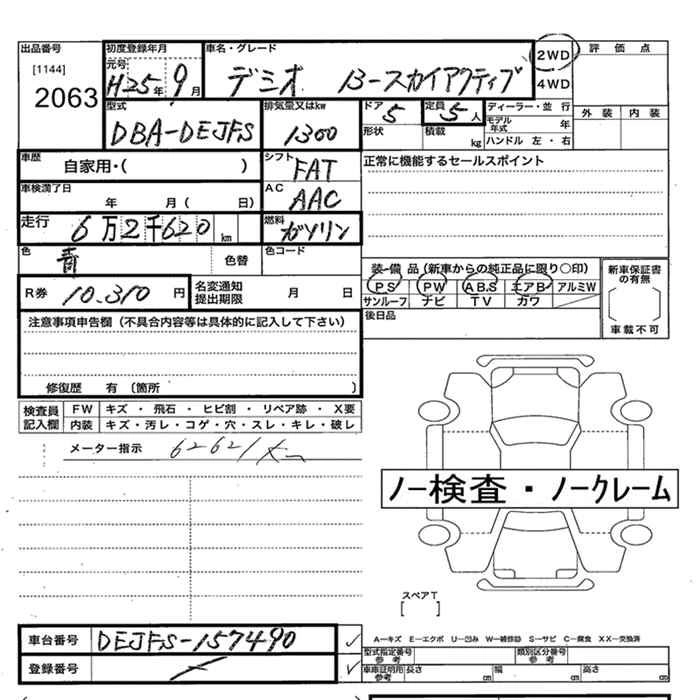 出品番号 初度登録年月 車名・グレード 評価点
[1144] 元号 2WD
2063 H25年 9月 デミオ 13-スカイアクティブ 4WD
型式 排気量又はkw ドア 定員 ディーラー・並行 外装 内装
DBA-DEJFS 1300 5 5人 モデル年式 年
形状 積載 kg ハンドル 左・右
車歴 自家用・( ) シフト FAT 正常に機能するセールスポイント
車検満了日 年 月( 日) AC AAC
走行 6万2千620 km 燃料 ガソリン
色 青 色替 色コード 装備品(新車からの純正品に限り○印) 新車保証書の有無
R券 10.310円 名変通知提出期限 月 日 PS PW A.B.S エアB アルミW
サンルーフ ナビ TV カワ
注意事項申告欄(不具合内容等は具体的に記入して下さい) 後日品 車載不可
修復歴 有〔箇所 〕
検査員記入欄 FW キズ・飛石・ヒビ割・リペア跡・X要
内装 キズ・汚レ・コゲ・穴・スレ・キレ・破レ
メーター指示 62621km
ノー検査・ノークレーム
スペアT
[ ]
車台番号 DEJFS-157490 A-キズ E-エクボ U-凹み W-補修跡 S-サビ C-腐食 XX-交換済
登録番号 型式指定番号 参考 類別区分番号 参考
車庫証明用 参考 長さ cm 幅 cm 高さ cm